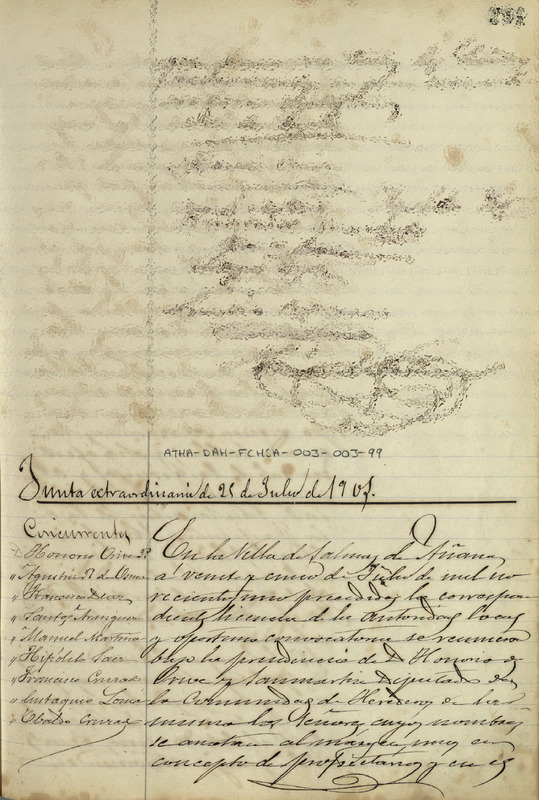 ATHA-DAH-FCHSA-003-003-99
Junta extraordinaria de 25 de Julio de 1901.
Concurrentes
D. Honorio Orive
" Agustin de Osma
" Francisco
" Santg.º Arangur
" Manuel Martino
" Hipólito Saez
" Francisco Corral
" Eutaquio Loma
" Ubaldo Corral
En la Villa de Salinas de Añana
á veinte y cinco de Julio de mil no
vecientos uno precedida la correspon
diente licencia de la autoridad local
y oportuna convocatoria se reunieron
bajo la presidencia de D. Honorio de
Orive y Sanmartin Diputado de
la Comunidad de Herederos de la
misma los Señores cuyos nombres
se anotan al márgen, unos en
concepto de propietarios y en el